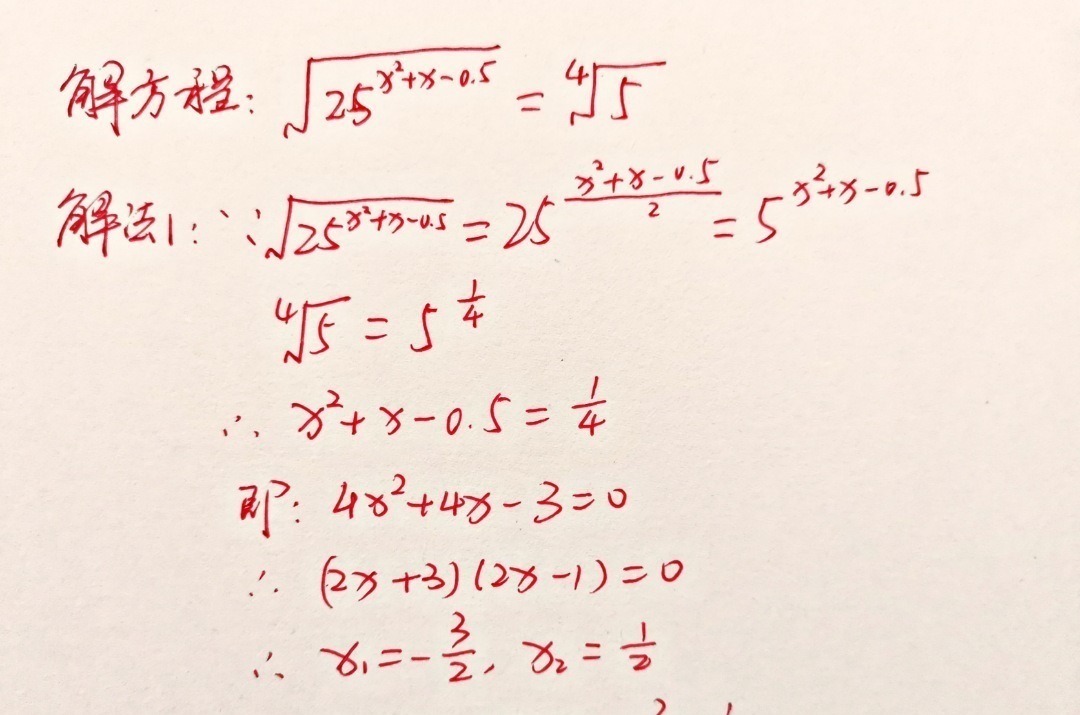 解方程: √(25^(x²+x-0.5)) = ⁴√5
解法1: ∵ √(25^(x²+x-0.5)) = 25^((x²+x-0.5)/2) = 5^(x²+x-0.5)
⁴√5 = 5^(1/4)
∴ x²+x-0.5 = 1/4
即: 4x²+4x-3=0
∴ (2x+3)(2x-1)=0
∴ x₁=-3/2, x₂=1/2